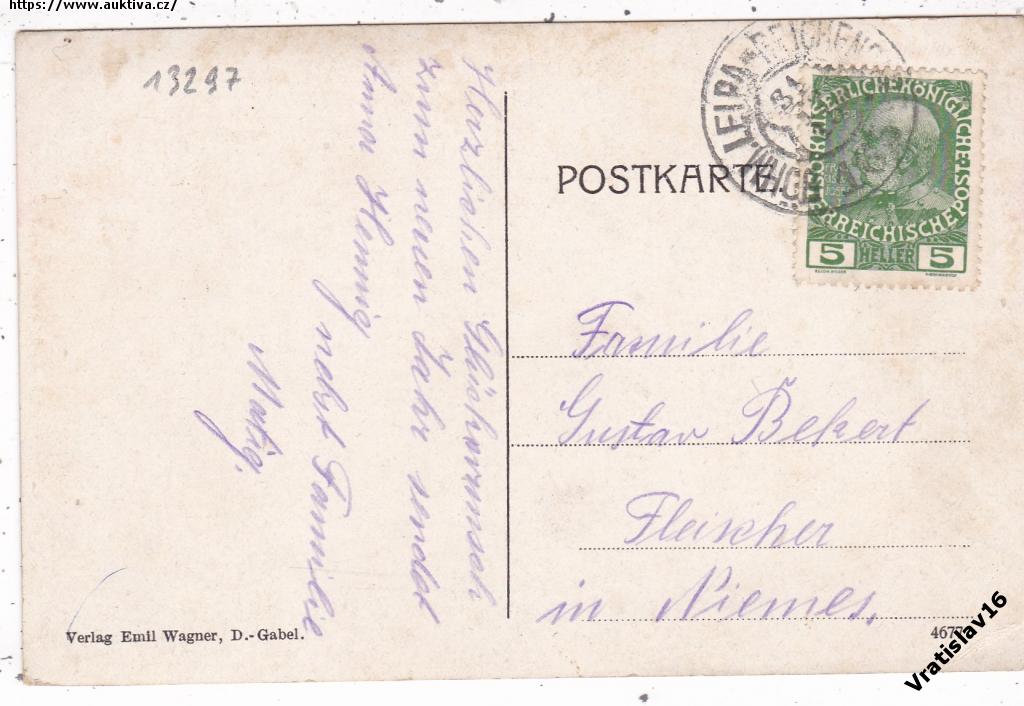 https://www.auktiva.cz/
13297
Herzlichen Glückwunsch
zum neuen Jahr sendet
Anna Hennig
nebst Familie
POSTKARTE.
LEIPA * REICHENB
KAISERLICHE KÖNIGLICHE
ÖSTERREICHISCHE POST
5 HELLER 5
Familie
Gustav Bekert
Fleischer
in Niemes.
Verlag Emil Wagner, D.-Gabel.
4677
Vratislav16